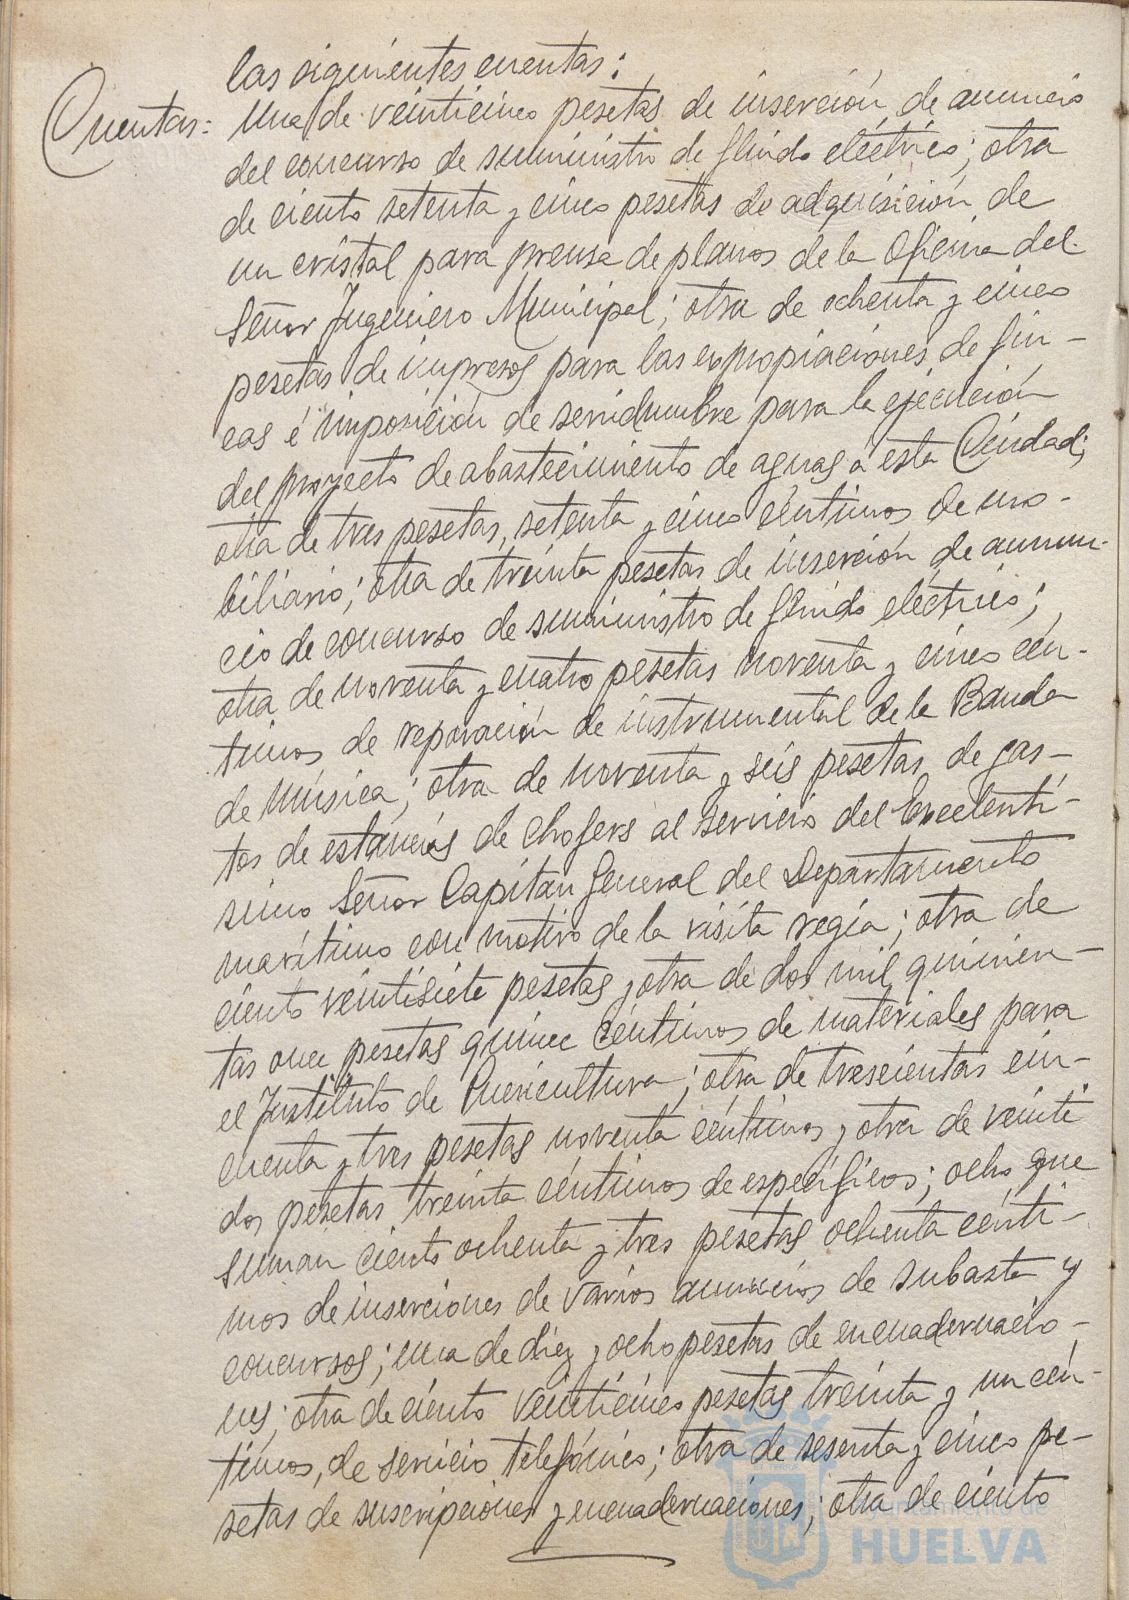 las siguientes cuentas:
Cuentas: Una de veinticinco pesetas de inserción de anuncio
del concurso de suministro de flúido eléctrico; otra
de ciento setenta y cinco pesetas de adquisición de
un cristal para prensa de planos de la Oficina del
Señor Ingeniero Municipal; otra de ochenta y cinco
pesetas de impresos para las expropiaciones de fin-
cas é imposición de servidumbre para la ejecución
del proyecto de abastecimiento de aguas á esta Ciudad;
otra de tres pesetas, setenta y cinco céntimos de mo-
biliario; otra de treinta pesetas de inserción de anun-
cio de concurso de suministro de flúido eléctrico;
otra de noventa y cuatro pesetas noventa y cinco cén-
timos de reparación de instrumental de la Banda
de Música; otra de noventa y seis pesetas de gas-
tos de estancias de chofers al servicio del Excelentí-
simo Señor Capitán General del Departamento
marítimo con motivo de la visita regia; otra de
ciento veintisiete pesetas y otra de dos mil quinien-
tas once pesetas quince céntimos de materiales para
el Instituto de Puericultura; otra de trescientas cin-
cuenta y tres pesetas noventa céntimos y otra de veinti
dos pesetas treinta céntimos de específicos; ocho que
suman ciento ochenta y tres pesetas ochenta cénti-
mos de inserciones de varios anuncios de subasta y
concursos; una de diez y ocho pesetas de encuadernacio-
nes; otra de ciento veinticinco pesetas treinta y un cén-
timos, de servicio telefónico; otra de sesenta y cinco pe-
setas de suscripciones y encuadernaciones; otra de ciento
Ayuntamiento de
HUELVA